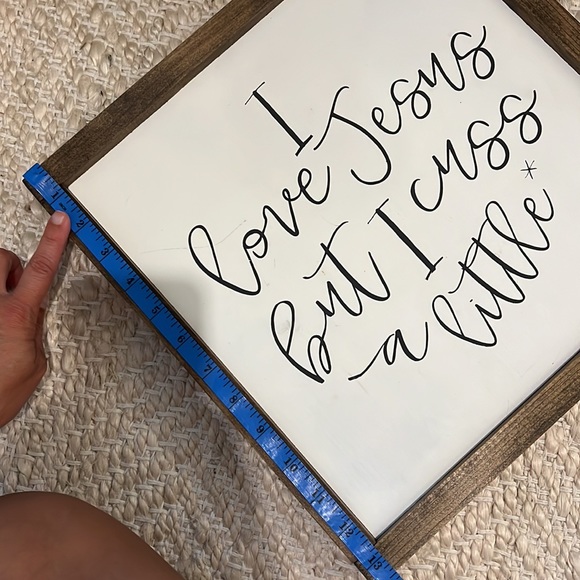 I
love Jesus
but I cuss
a little *
1 2 3 4 5 6 7 8 9 10 11 12 13